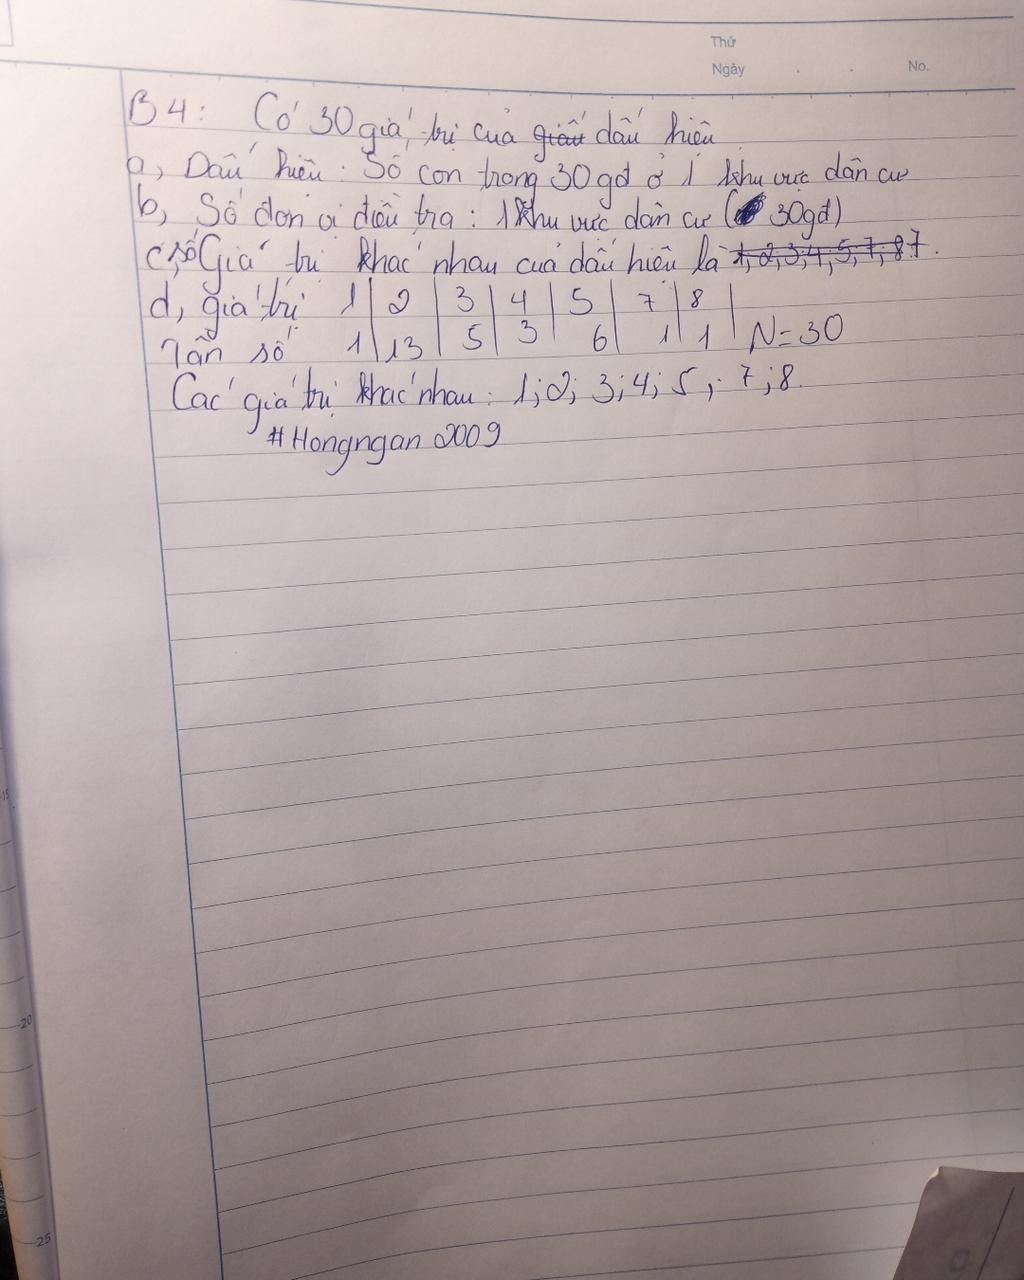 Thứ
Ngày No.
B4: Có 30 giá trị của giấu dấu hiệu
a, Dấu hiệu: Số con trong 30 gđ ở 1 khu vực dân cư
b, Số đơn vị điều tra: 1 khu vực dân cư (30gđ)
c, số Giá trị khác nhau của dấu hiệu là 1, 2, 3, 4, 5, 7, 8 7.
d, giá trị 1 2 3 4 5 7 8
Tần số 1 13 5 3 6 1 1 N=30
Các giá trị khác nhau: 1; 2; 3; 4; 5; 7; 8.
#Hongngan 2009
15
20
25